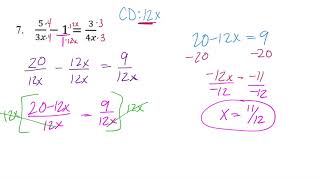 CD: 12x
7. 5·4/3x·4 − 1·12x/1·12x = 3·3/4x·3
20/12x − 12x/12x = 9/12x
12x [ 20-12x/12x = 9/12x ] 12x
20-12x = 9
-20 -20
-12x/-12 = -11/-12
x = 11/12